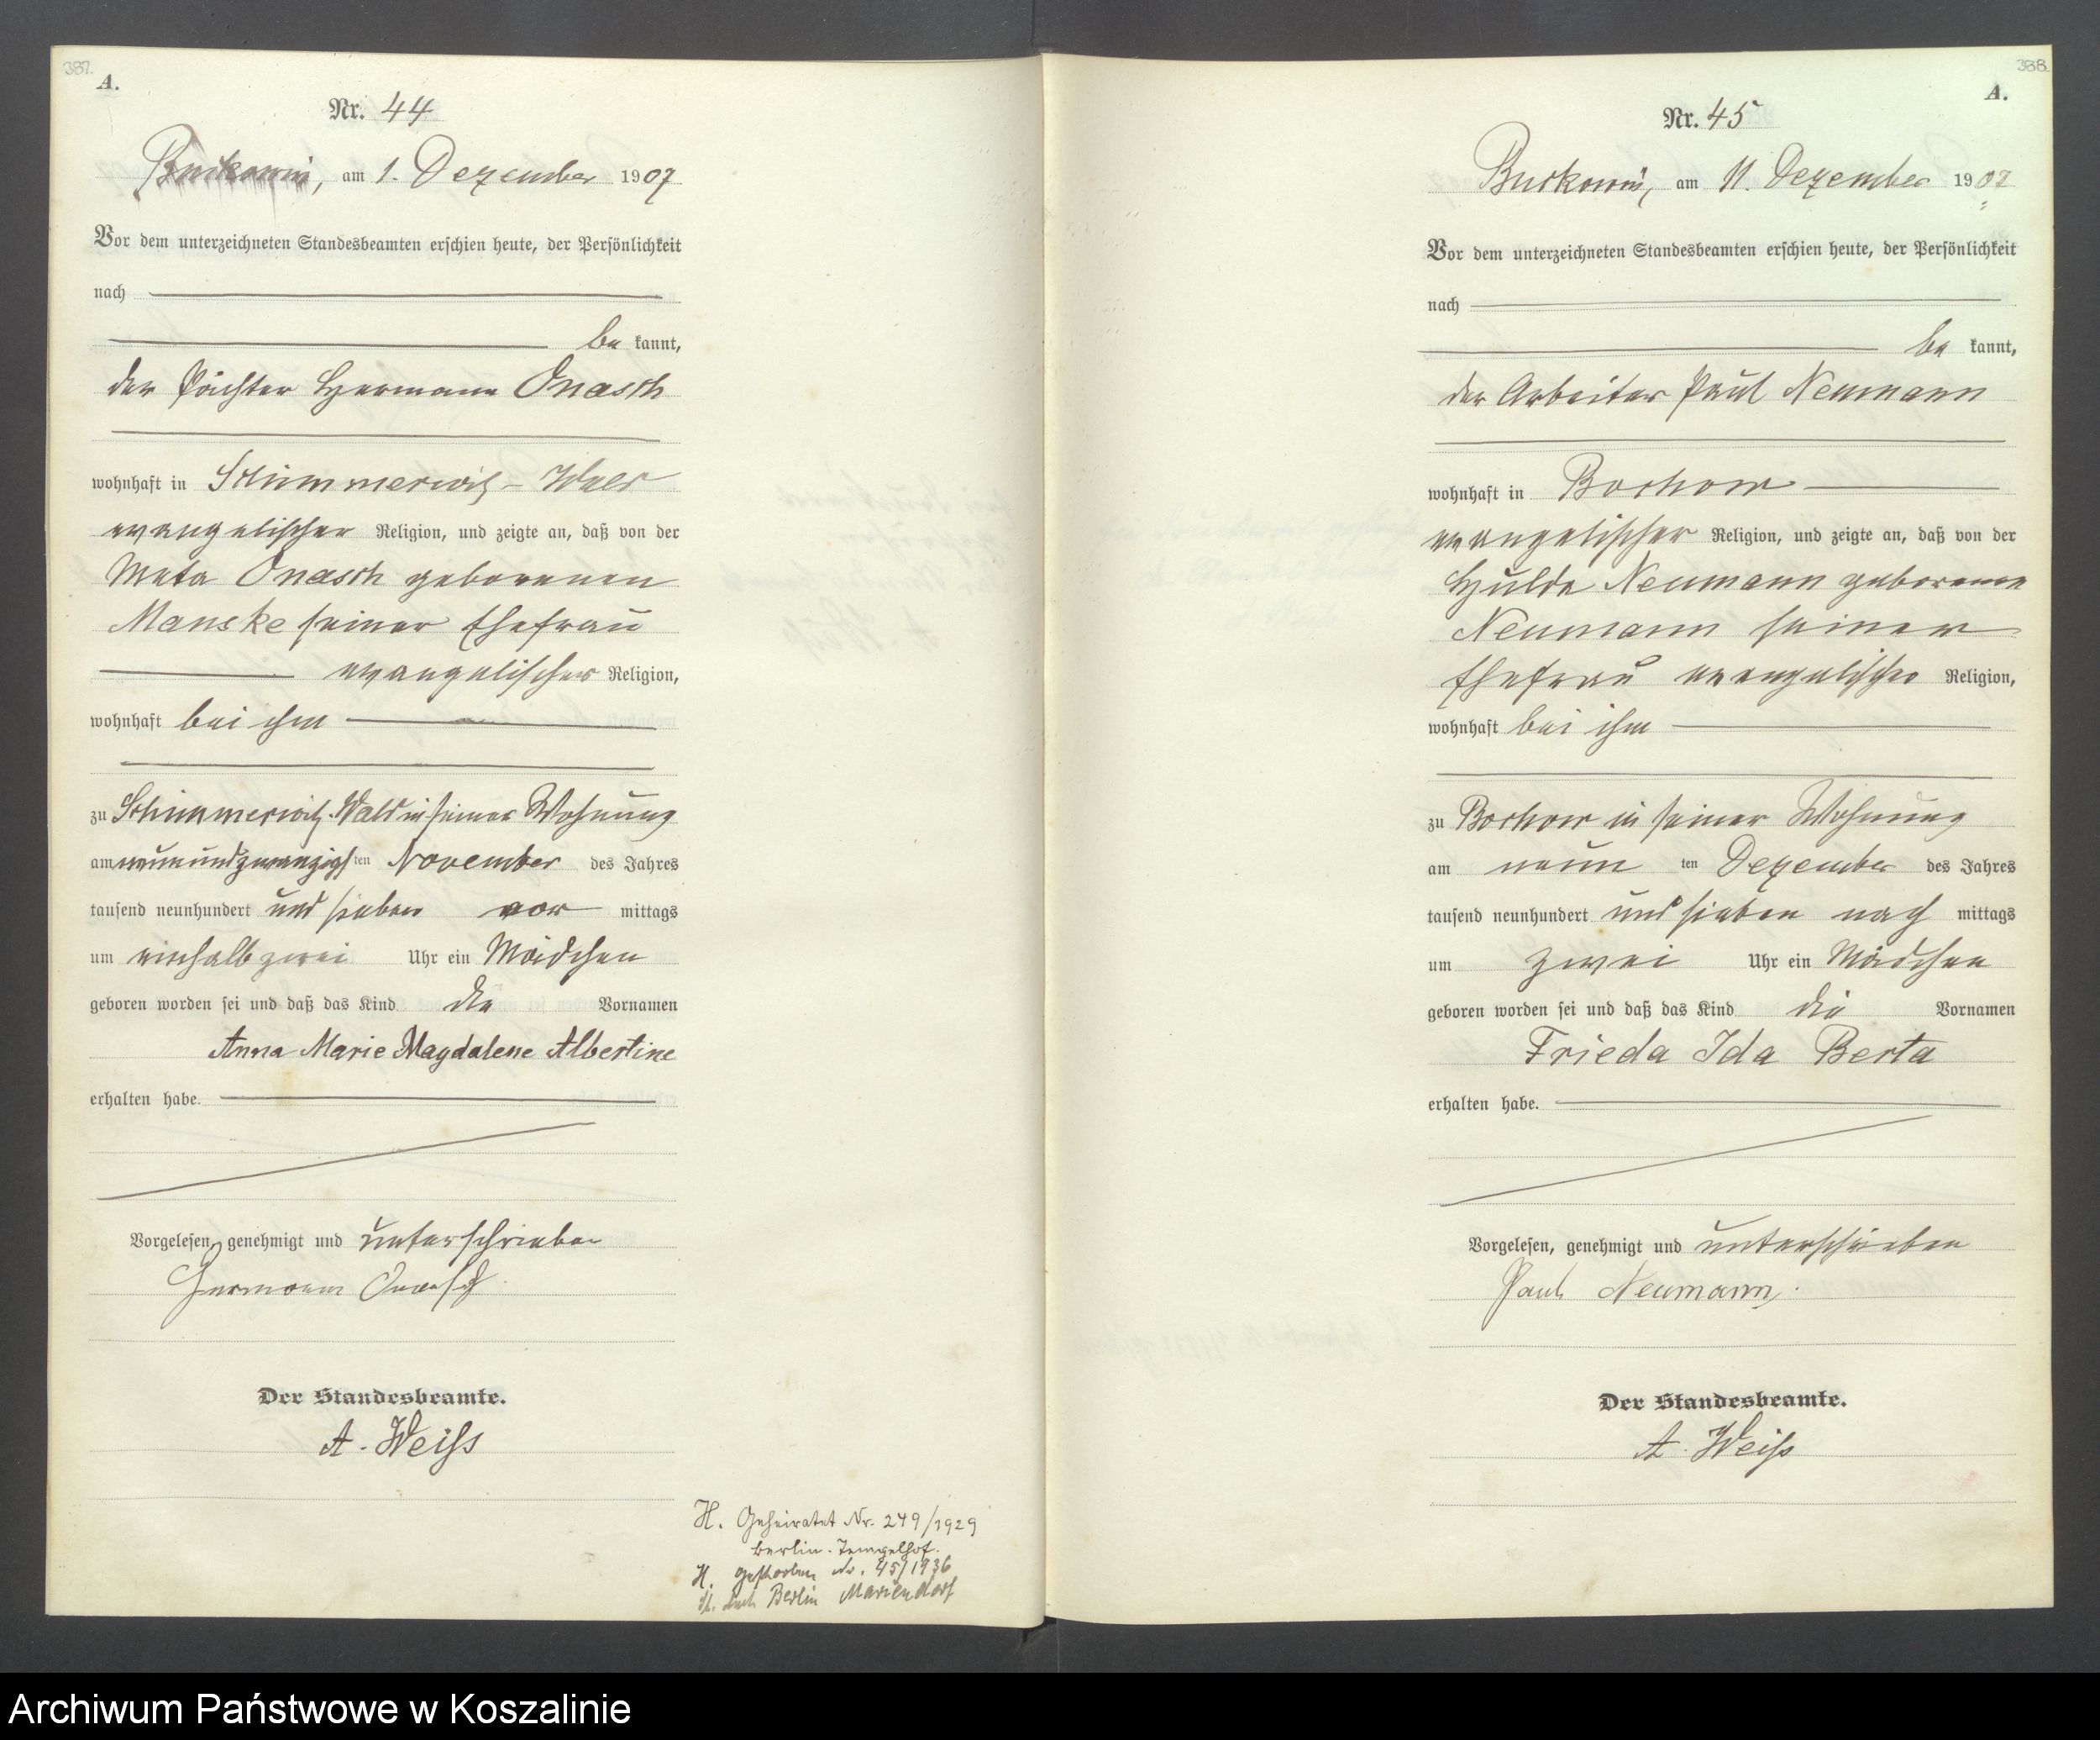 387.
A.
Nr. 44
Buckowin, am 1. Dezember 1907
Vor dem unterzeichneten Standesbeamten erschien heute, der Persönlichkeit
nach
be kannt,
der Pächter Hermann Onasch
wohnhaft in Schimmerwitz-Wald
evangelischer Religion, und zeigte an, daß von der
Meta Onasch geborenen
Manske seiner Ehefrau
evangelischer Religion,
wohnhaft bei ihm
zu Schimmerwitz-Wald in seiner Wohnung
am neunundzwanzigsten November des Jahres
tausend neunhundert und sieben vor mittags
um einhalb zwei Uhr ein Mädchen
geboren worden sei und daß das Kind die Vornamen
Anna Marie Magdalene Albertine
erhalten habe.
Vorgelesen, genehmigt und unterschrieben
Hermann Onasch
Der Standesbeamte.
A. Weiss
H. Geheiratet Nr. 249/1929
Berlin-Tempelhof.
H. gestorben Nr. 45/1936
Berlin Mariendorf
388.
A.
Nr. 45
Buckowin, am 11. Dezember 1907
Vor dem unterzeichneten Standesbeamten erschien heute, der Persönlichkeit
nach
be kannt,
der Arbeiter Paul Neumann
wohnhaft in Bochow
evangelischer Religion, und zeigte an, daß von der
Hulda Neumann geborenen
Neumann seiner
Ehefrau evangelischer Religion,
wohnhaft bei ihm
zu Bochow in seiner Wohnung
am neun ten Dezember des Jahres
tausend neunhundert und sieben nach mittags
um zwei Uhr ein Mädchen
geboren worden sei und daß das Kind die Vornamen
Frieda Ida Berta
erhalten habe.
Vorgelesen, genehmigt und unterschrieben
Paul Neumann.
Der Standesbeamte.
A. Weiss
Archiwum Państwowe w Koszalinie